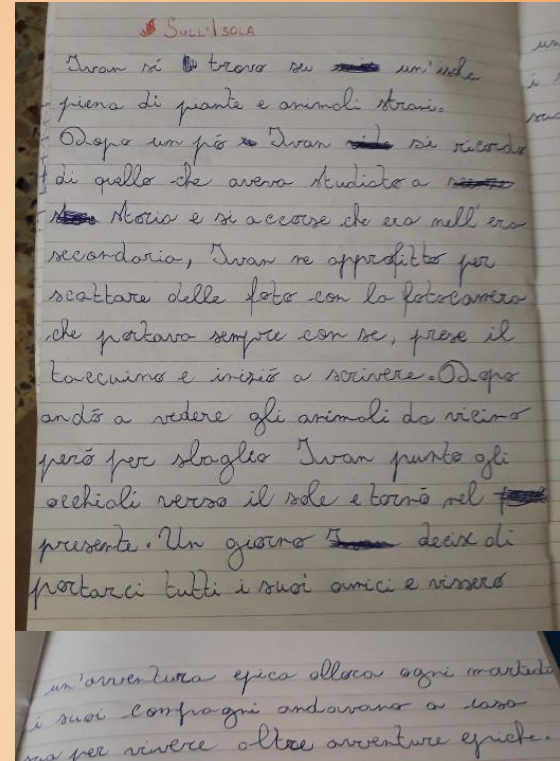 SULL'ISOLA
Ivan si trova su un'isola
piena di piante e animali strani.
Dopo un pó Ivan si ricorda
di quello che aveva studiato a
storia e si accorse che era nell'era
secondaria, Ivan ne approfitto per
scattare delle foto con la fotocamera
che portava sempre con se, prese il
taccuino e iniziò a scrivere. Dopo
andò a vedere gli animali da vicino
però per sbaglio Ivan puntò gli
occhiali verso il sole e tornò nel
presente. Un giorno decise di
portarci tutti i suoi amici e vissero
un'avventura epica allora ogni martedì
i suoi compagni andavano a casa
sua per vivere altre avventure epiche.